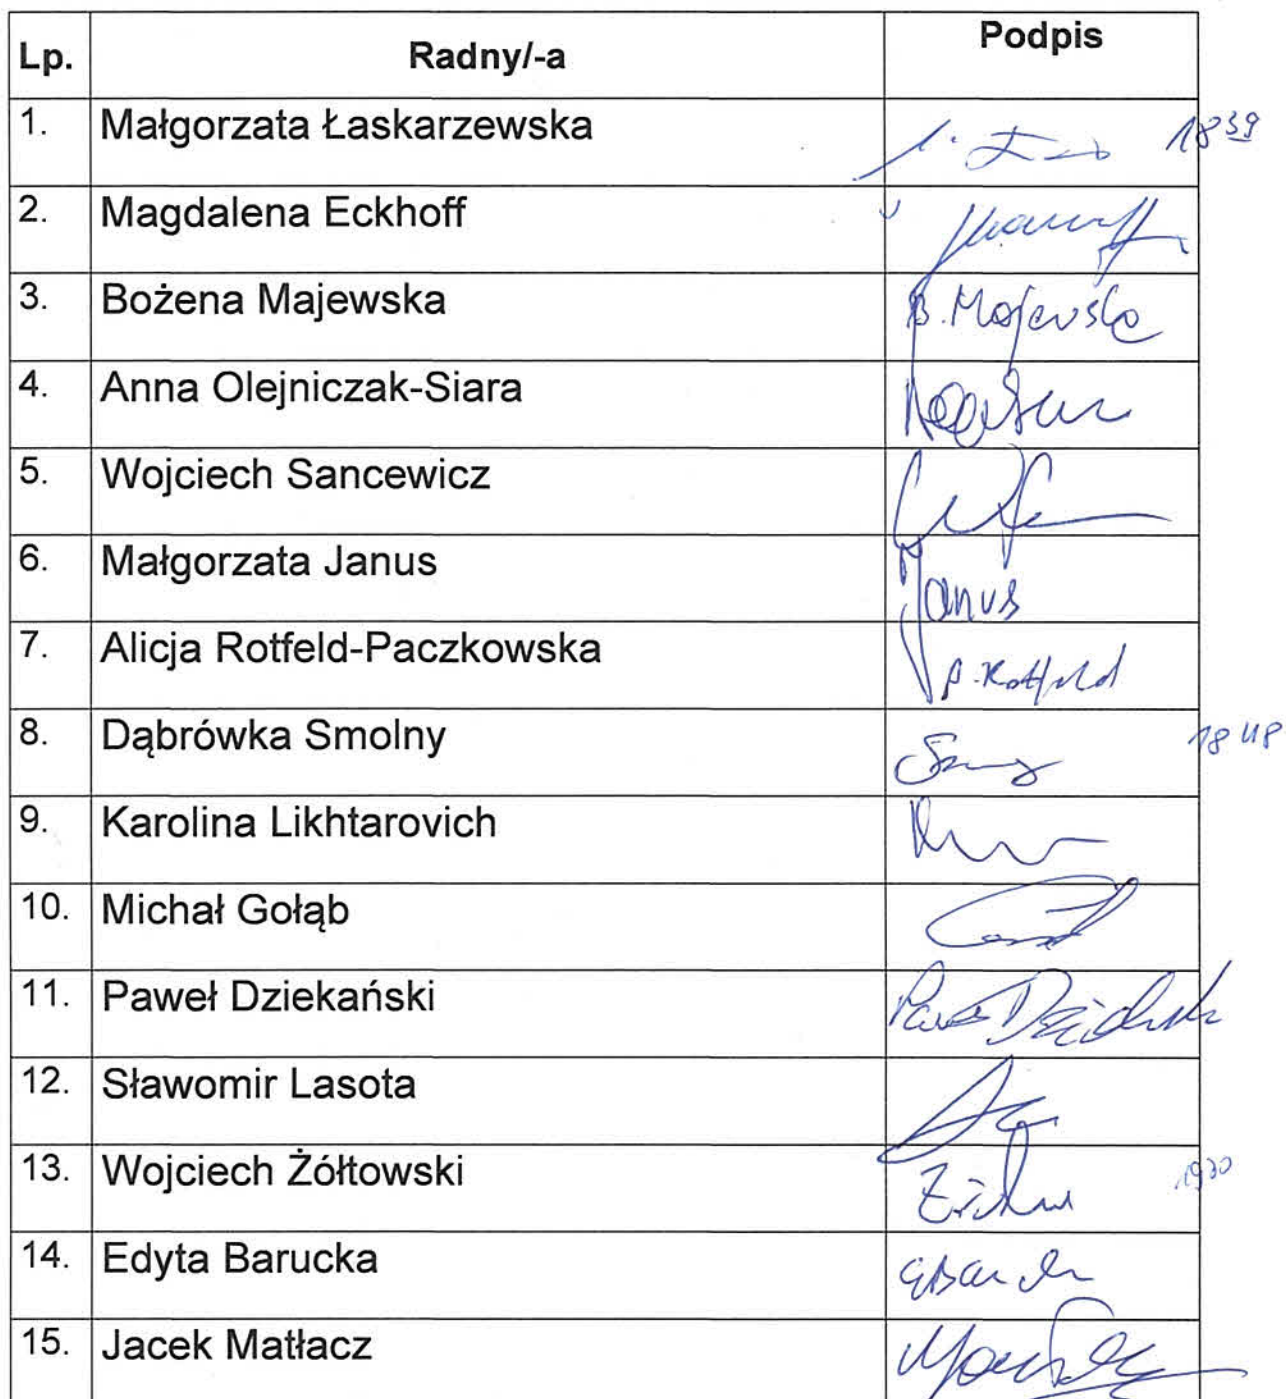 Lp. Radny/-a Podpis
1. Małgorzata Łaskarzewska 18 39
2. Magdalena Eckhoff
3. Bożena Majewska B. Majewska
4. Anna Olejniczak-Siara
5. Wojciech Sancewicz
6. Małgorzata Janus Janus
7. Alicja Rotfeld-Paczkowska A. Rotfeld
8. Dąbrówka Smolny 18 48
9. Karolina Likhtarovich
10. Michał Gołąb
11. Paweł Dziekański
12. Sławomir Lasota
13. Wojciech Żółtowski
14. Edyta Barucka
15. Jacek Matłacz